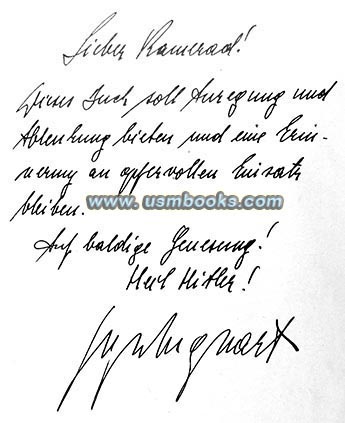 Lieber Kamerad!
Dieses Buch soll Anregung und
Ablenkung bieten und eine Erin-
nerung an opfervollen Einsatz
bleiben.
www.usmbooks.com
Auf baldige Genesung!
Heil Hitler!